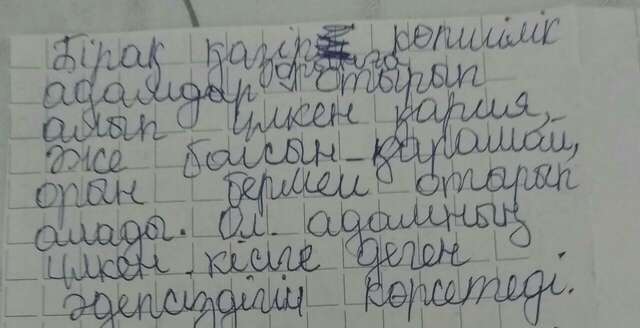 Бірақ қазір көпшілік
адамдар орнына отырып
алып үлкен қария,
әже болсын қарамай,
орын бермей отырып
алады. Ол адамның
үлкен кісіге деген
әдепсіздігін көрсетеді.